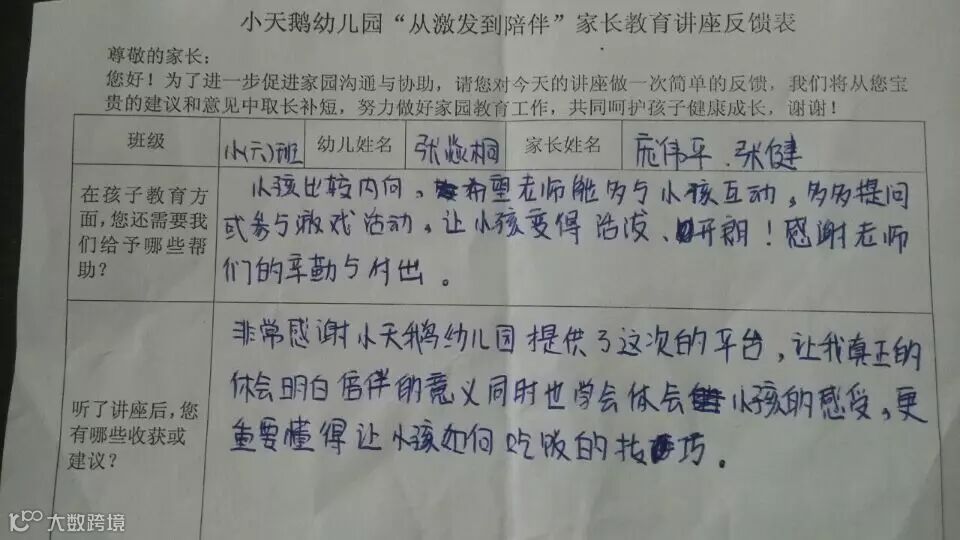 小天鹅幼儿园“从激发到陪伴”家长教育讲座反馈表
尊敬的家长：
您好！为了进一步促进家园沟通与协助，请您对今天的讲座做一次简单的反馈，我们将从您宝
贵的建议和意见中取长补短，努力做好家园教育工作，共同呵护孩子健康成长，谢谢！
班级 小(六)班 幼儿姓名 张焱桐 家长姓名 庞伟平、张健
在孩子教育方
面，您还需要我
们给予哪些帮
助？
小孩比较内向，希望老师能多与小孩互动，多多提问
或参与游戏活动，让小孩变得活泼、开朗！感谢老师
们的辛勤与付出。
听了讲座后，您
有哪些收获或
建议？
非常感谢小天鹅幼儿园提供了这次的平台，让我真正的
体会明白陪伴的意义同时也学会体会小孩的感受，更
重要懂得让小孩如何吃饭的技巧。
大数跨境